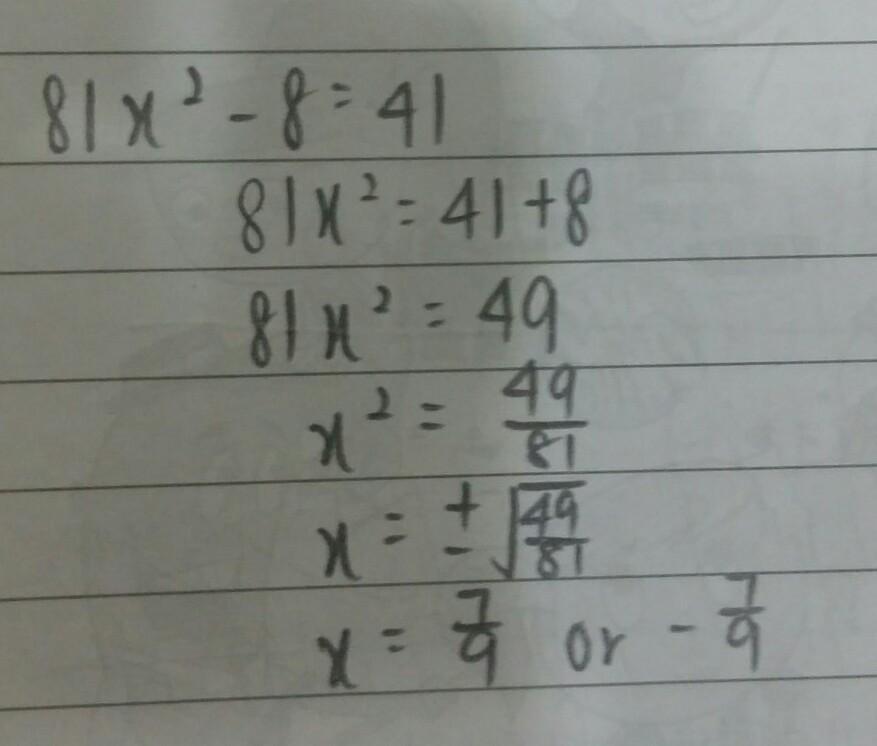 81x² - 8 = 41
81x² = 41 + 8
81x² = 49
x² = 49/81
x = ±√(49/81)
x = 7/9 or - 7/9